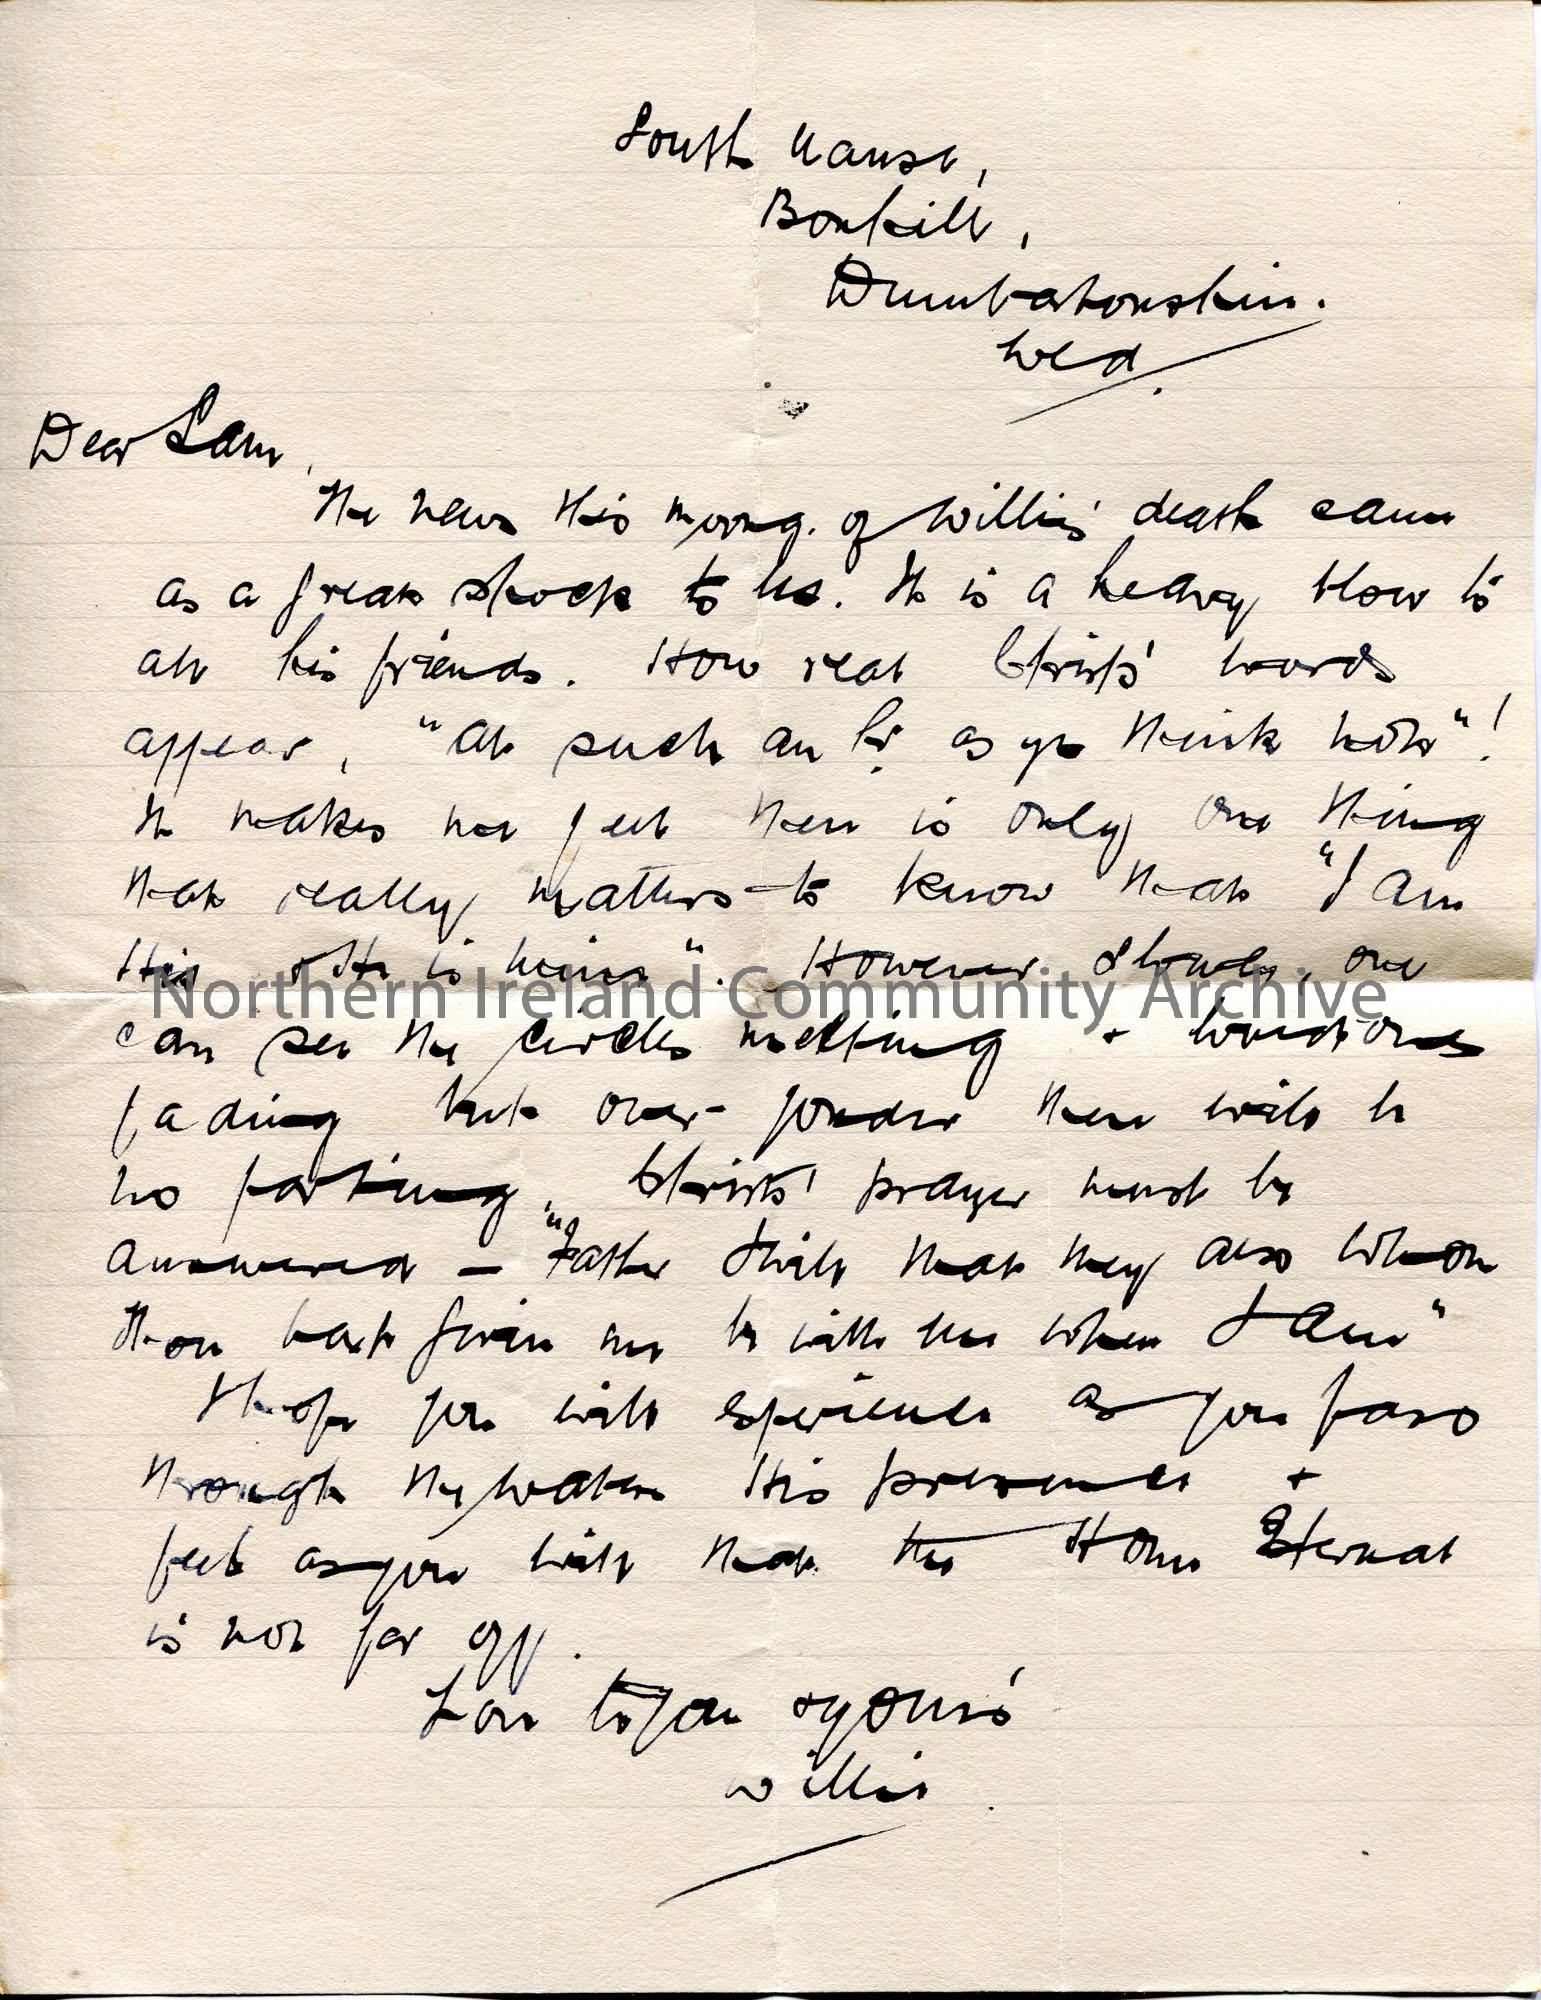 South Manse,
Bonhill,
Dumbartonshire.
Wed.
Dear Sam,
The news this morng. of Willie's death came
as a great shock to us. It is a heavy blow to
all his friends. How real Christ's words
appear, "At such an hr. as ye think not"!
It makes me feel there is only one thing
that really matters - to know that "I am
His & He is mine". However slowly, one
can see the circles melting & loved ones
fading but over yonder there will be
no parting. Christ's prayer must be
answered - "Father I will that they also whom
thou hast given me be with me where I am"
I hope you will experience as you pass
through the waters His presence &
feel as you will that the Home Eternal
is not far off.
Love to you & yours
Willie
Northern Ireland Community Archive